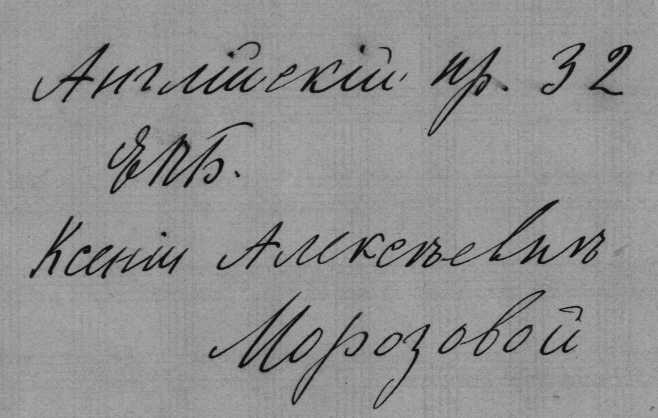 Англійскій пр. 32
СПБ.
Ксеніи Алексѣевнѣ
Морозовой